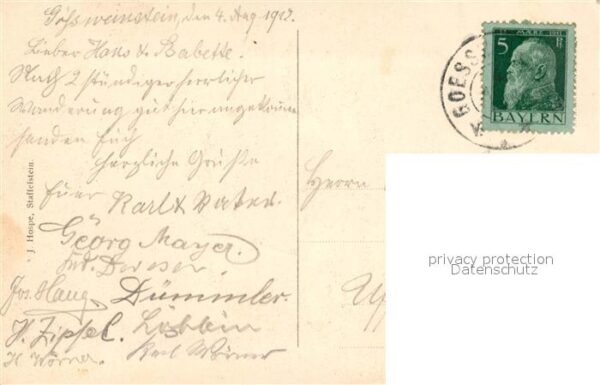 Gößweinstein, den 4. Aug 1912.
Lieber Hans & Babette.
Nach 2 stündiger herrlicher
Wanderung gut hier angekommen
senden Euch
herzliche Grüße
Euer Karl & Vater.
Georg Mayer.
Jos. Haug Dümmler.
H. Zipfel.
H. Wörner Karl Wörner
J. Hospe, Staffelstein.
Herrn
5 Pf
BAYERN
GOESS
privacy protection
Datenschutz